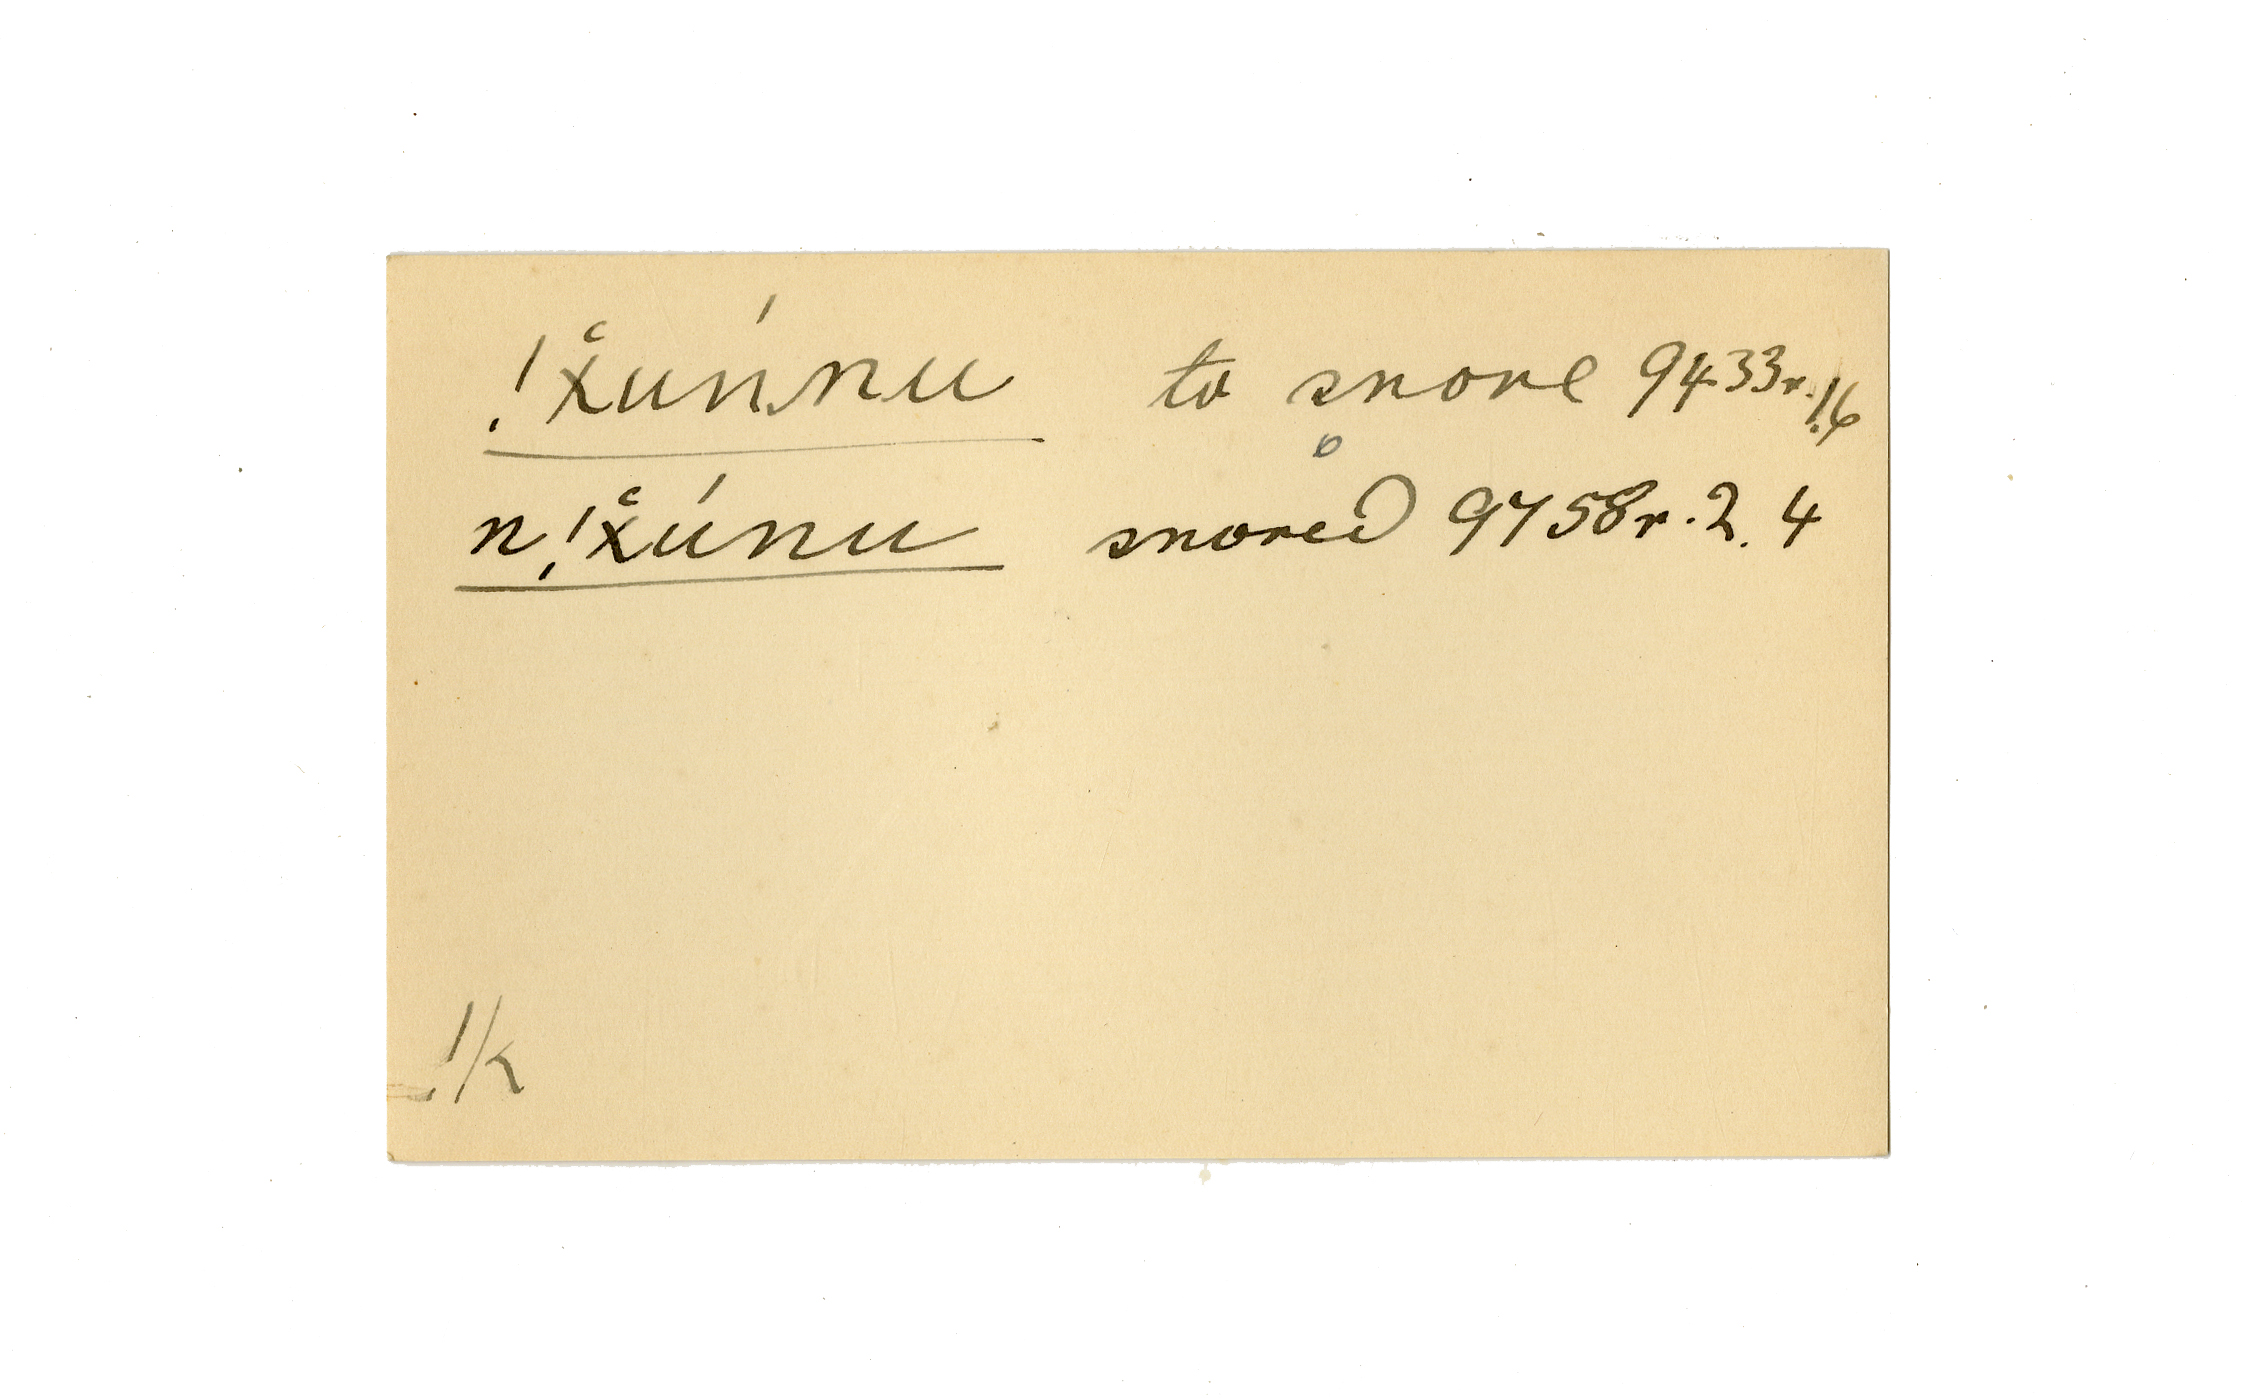 !x̌uńnu to snore 9433r.!.6
n!x̌únu snored 9758r.2.4
!k